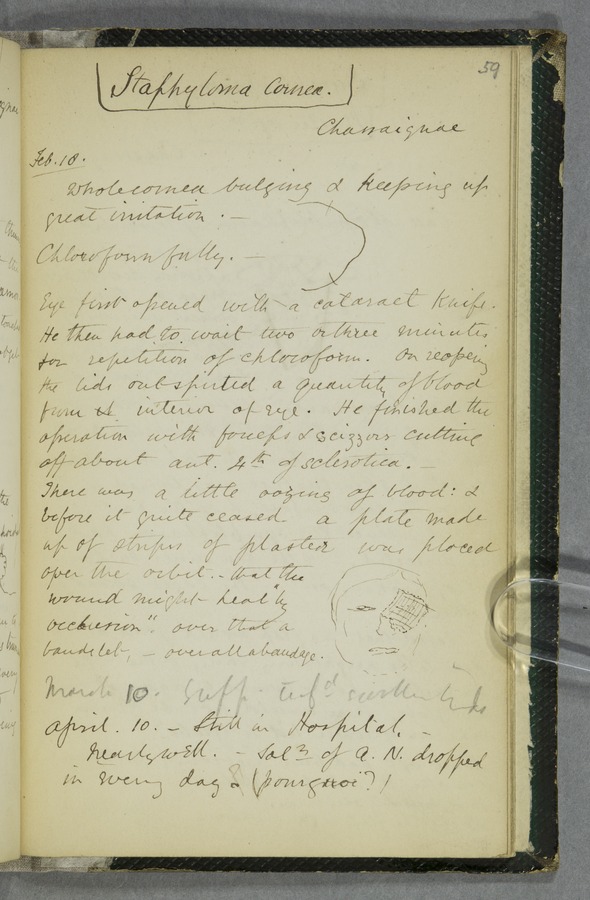 59
Staphyloma Corneæ.
Chassaignac
Feb. 18.
Whole cornea bulging & keeping up
great irritation. —
Chloroform fully. —
Eye first opened with a cataract knife.
He then had to wait two or three minutes
for repetition of chloroform. On reopening
the lids out spirted a quantity of blood
from interior of eye. He finished the
operation with forceps & scizzors cutting
off about ant. 4th of sclerotica. —
There was a little oozing of blood: &
before it quite ceased a plate made
up of strips of plaster was placed
over the orbit. - that the
wound might heal "by
occlusion". over that a
bandelet, — over all a bandage.
March 10. Supp.
April. 10. — Still in Hospital. —
Nearly well. — Sol? of A. N. dropped
in every day & (pourquoi?)